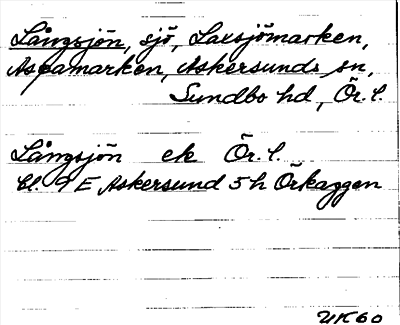 Långsjön, sjö, Laxsjömarken,
Aspamarken, Askersunds sn,
Sundbo hd, Ör. l.
Långsjön ek Ör. l.
bl. 9 E Askersund 5 h Örkaggen
UK60